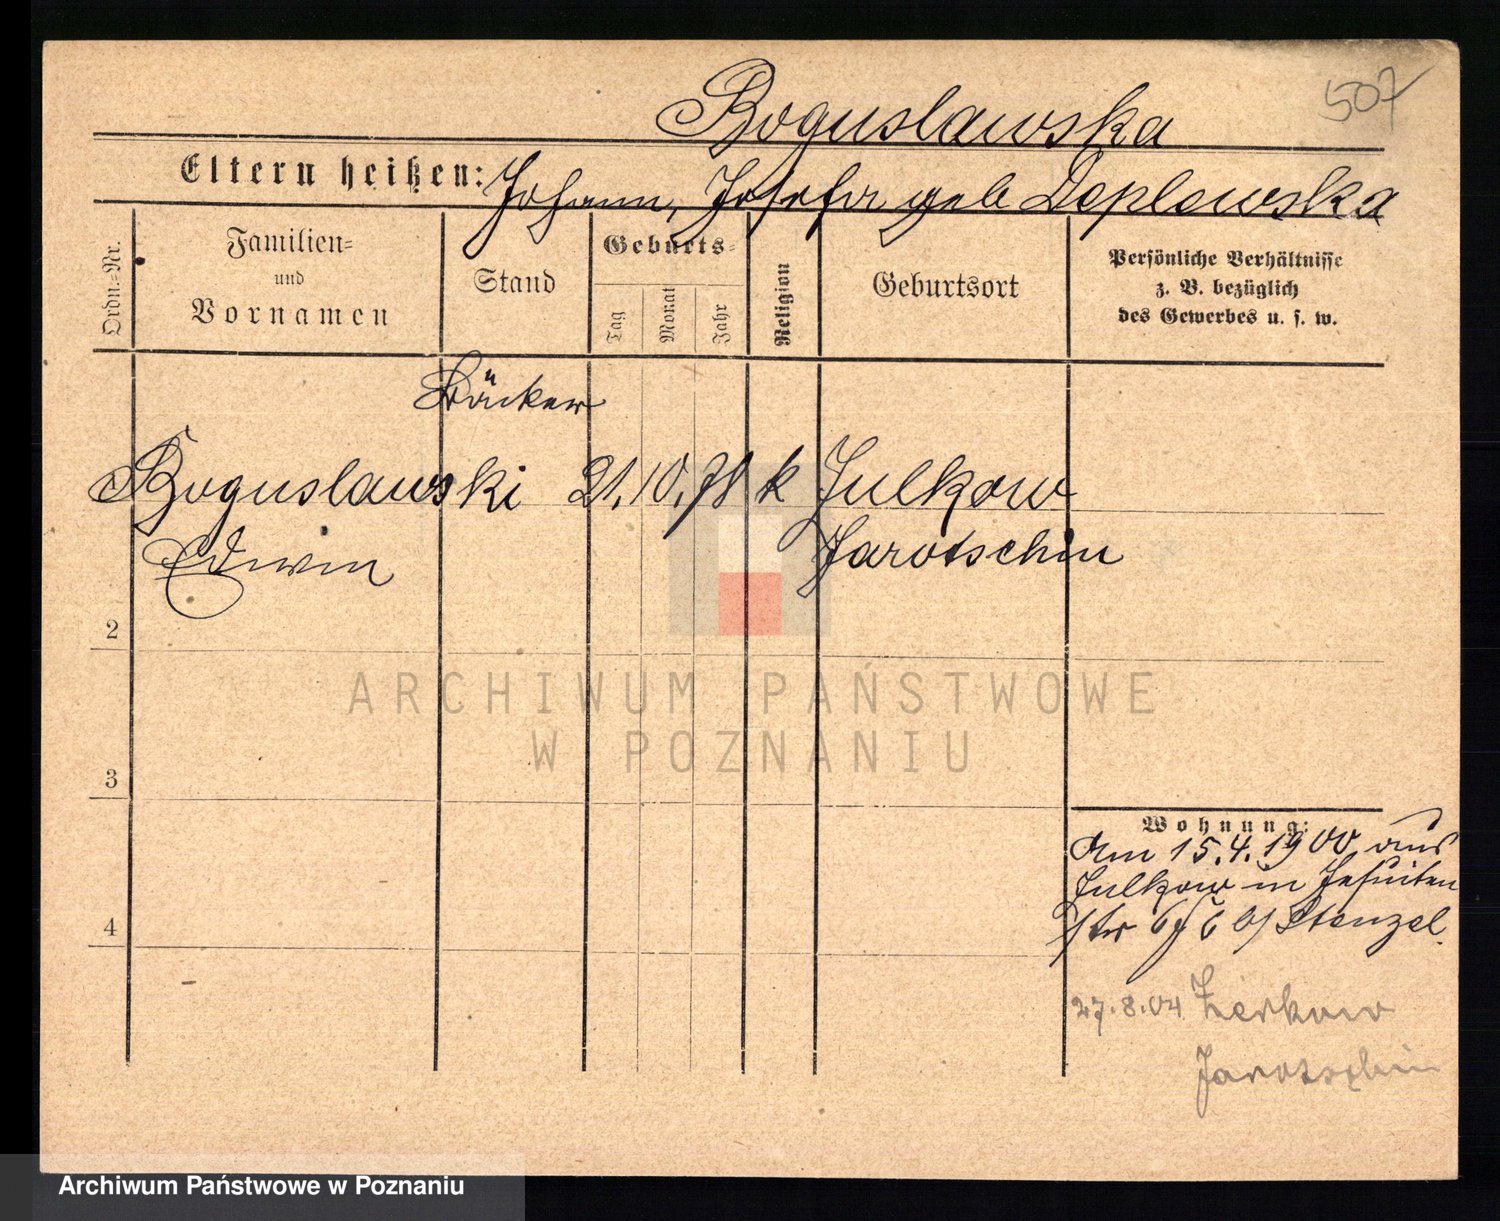 507
Boguslawska
Eltern heißen: Johann, Josefa geb Doplewska
Ordn.-Nr.
Familien-
und
Vornamen
Stand
Geburts-
Tag
Monat
Jahr
Religion
Geburtsort
Persönliche Verhältnisse
z. B. bezüglich
des Gewerbes u. s. w.
Bäcker
Boguslawski 21. 10. 78 k Zulkow
Edwin Jarotschin
2
3
4
Wohnung:
Am 15.4.1900 aus
Zulkow in Jesuiten
str Stenzel.
27.8.04 Zerkow
Jarotschin
ARCHIWUM PAŃSTWOWE
W POZNANIU
Archiwum Państwowe w Poznaniu